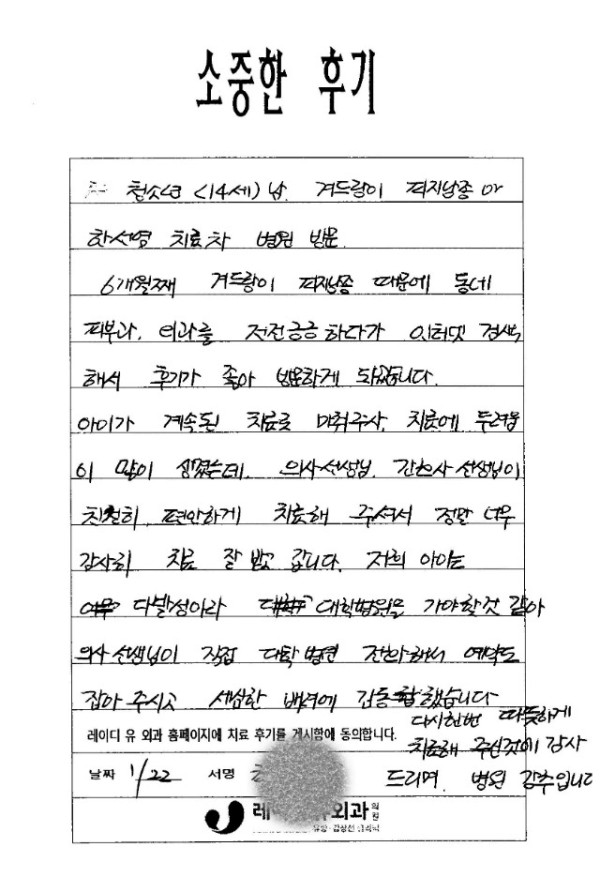 소중한 후기
청소년 (14세) 남. 겨드랑이 피지낭종 or
화선염 치료차 병원 방문.
6개월째 겨드랑이 피지낭종 때문에 동네
피부과, 외과를 전전긍긍 하다가 인터넷 검색
해서 후기가 좋아 방문하게 되었습니다.
아이가 계속된 치료로 마취주사, 치료에 두려움
이 많이 생겼는데. 의사선생님, 간호사 선생님이
친절히 편안하게 치료해 주셔서 정말 너무
감사히 치료 잘 받고 갑니다. 저희 아이는
다발성이라 대학병원을 가야할것 같아
의사선생님이 직접 대학병원 전화해서 예약도
잡아 주시고 세심한 배려에 감동 했습니다
다시한번 따뜻하게
레이디 유 외과 홈페이지에 치료 후기를 게시함에 동의합니다.
치료해 주신것에 감사
날짜 1/22 서명
드리며. 병원 강추입니다
레 외과 의원
유방·갑상선 클리닉